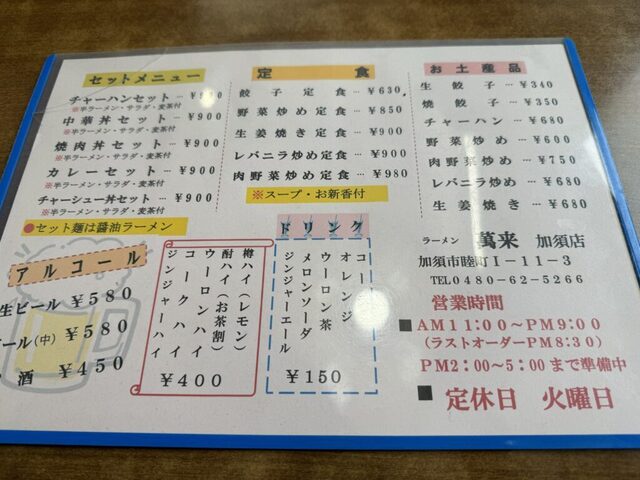 セットメニュー
チャーハンセット … ¥900
※半ラーメン・サラダ・麦茶付
中華丼セット … ¥900
※半ラーメン・サラダ・麦茶付
焼肉丼セット … ¥900
※半ラーメン・サラダ・麦茶付
カレーセット … ¥900
※半ラーメン・サラダ・麦茶付
チャーシュー丼セット … ¥900
※半ラーメン・サラダ・麦茶付
●セット麺は醤油ラーメン
定食
餃子定食 … ¥630
野菜炒め定食 … ¥850
生姜焼き定食 … ¥900
レバニラ炒め定食 … ¥900
肉野菜炒め定食 … ¥980
※スープ・お新香付
お土産品
生餃子 … ¥340
焼餃子 … ¥350
チャーハン … ¥680
野菜炒め … ¥600
肉野菜炒め … ¥750
レバニラ炒め … ¥680
生姜焼き … ¥680
アルコール
生ビール ¥580
ール(中) ¥580
酒 ¥450
樽ハイ(レモン)
酎ハイ(お茶割)
ウーロンハイ
コークハイ
ジンジャーハイ
¥400
ドリンク
コーラ
オレンジ
ウーロン茶
メロンソーダ
ジンジャーエール
¥150
ラーメン 萬来 加須店
加須市睦町1-11-3
TEL0480-62-5266
営業時間
■AM11:00~PM9:00
(ラストオーダーPM8:30)
PM2:00~5:00まで準備中
■定休日 火曜日